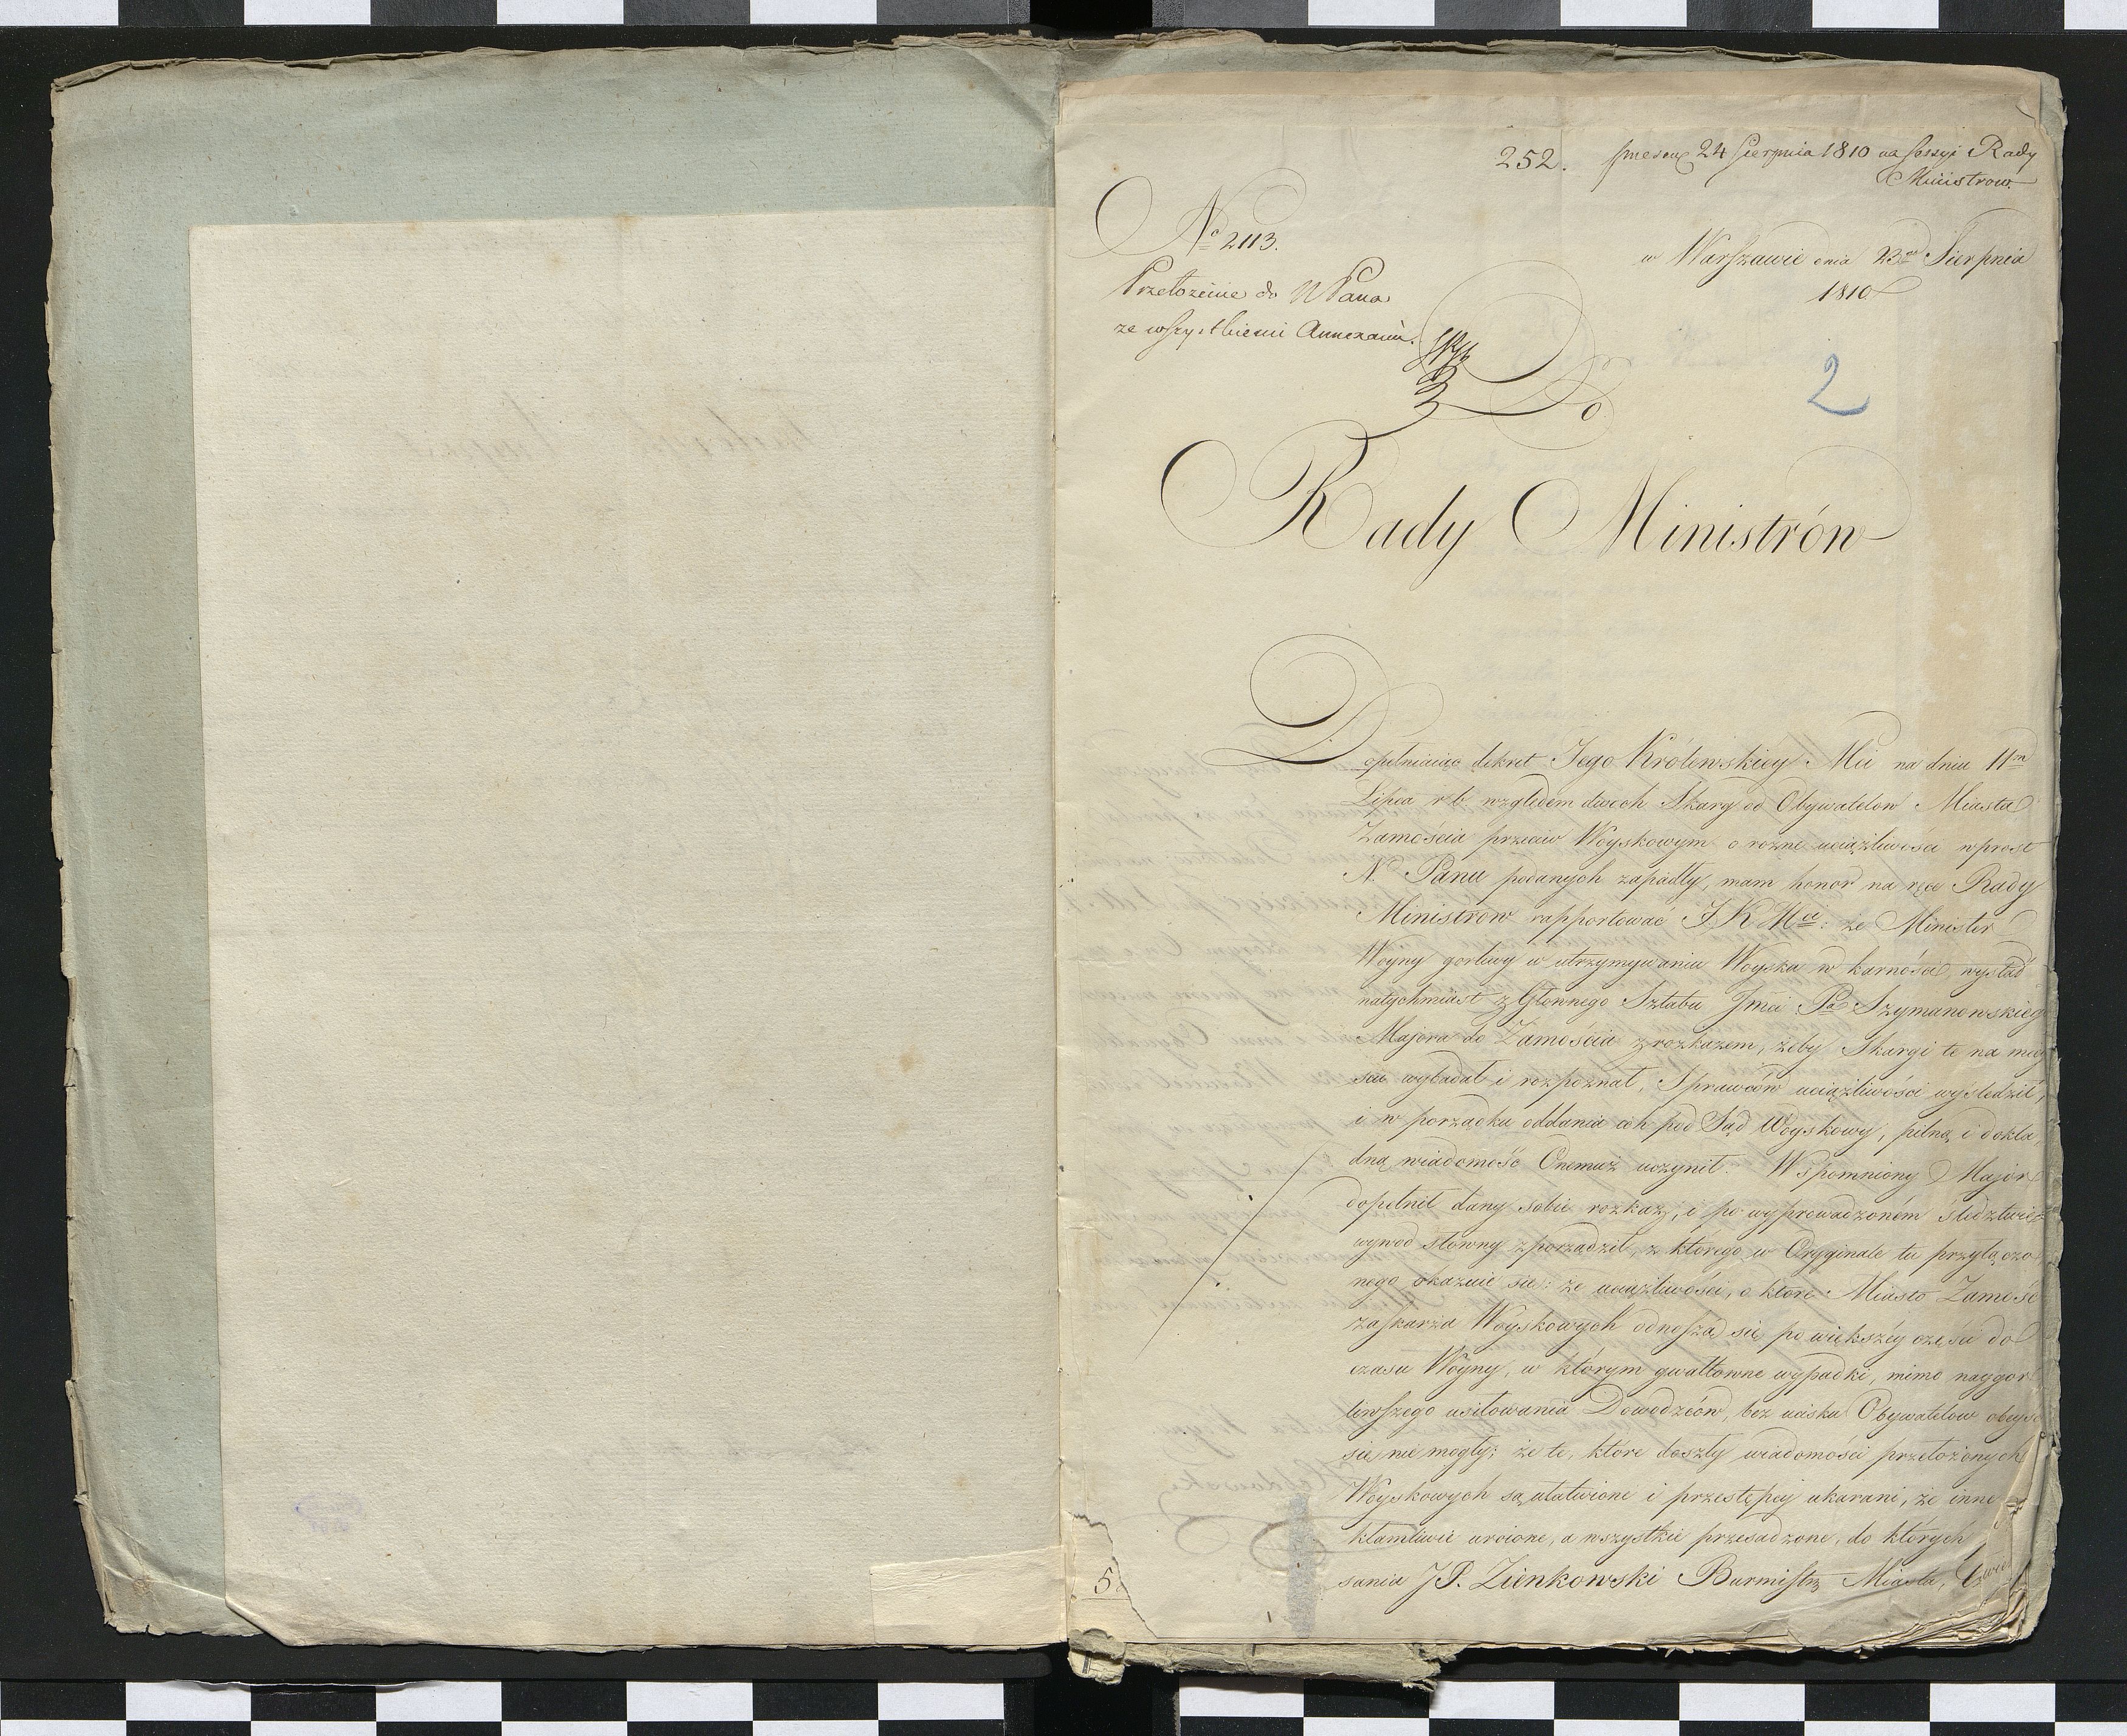 252. 24 Sierpnia 1810 na Sessyi Rady
Ministrow.
No 2113.
w Warszawie dnia 23go Sierpnia
1810
Przełożenie do N Pana
ze wszystkiemi Annexami.
2
Do
Rady Ministrów
Dopełniaiąc dekret Jego Królewskiey Mci na dniu 11m
Lipca r b. względem dwóch Skarg od Obywatelów Miasta
Zamościa przeciw Woyskowym o rożne uciążliwości wprost
N. Panu podanych zapadły, mam honor na ręce Rady
Ministrow rapportować J. K Mci: że Minister
Woyny gorliwy w utrzymywaniu Woyska w karności, wysłał
natychmiast z Głownego Sztabu Jmci Pa Szymanowskiego
Majora do Zamościa z rozkazem, żeby Skargi te na miey
scu wybadał i rozpoznał, Sprawców uciążliwości wyśledził,
i w porządku oddania ich pod Sąd Woyskowy, pilną i dokła
dną wiadomość Onemuż uczynił. Wspomniony Major
dopełnił dany sobie rozkaz, i po wyprowadzoném śledztwie
wywod słowny zporządził, z którego w Oryginale tu przyłączo
nego okazuie się: że uciążliwości, o które Miasto Zamość
zaskarża Woyskowych odnoszą się po większéy części do
czasu Woyny, w którym gwałtowne wypadki, mimo naygor
liwszego usiłowania Dowodzców, bez ucisku Obywatelow obeyść
się nie mogły; że te, które doszły wiadomości przełożonych
Woyskowych są ułatwione i przestępcy ukarani, że inne
kłamliwie urcione, a wszystkie przesadzone, do których
sania JP. Zienkowski Burmistrz Miasta,
5